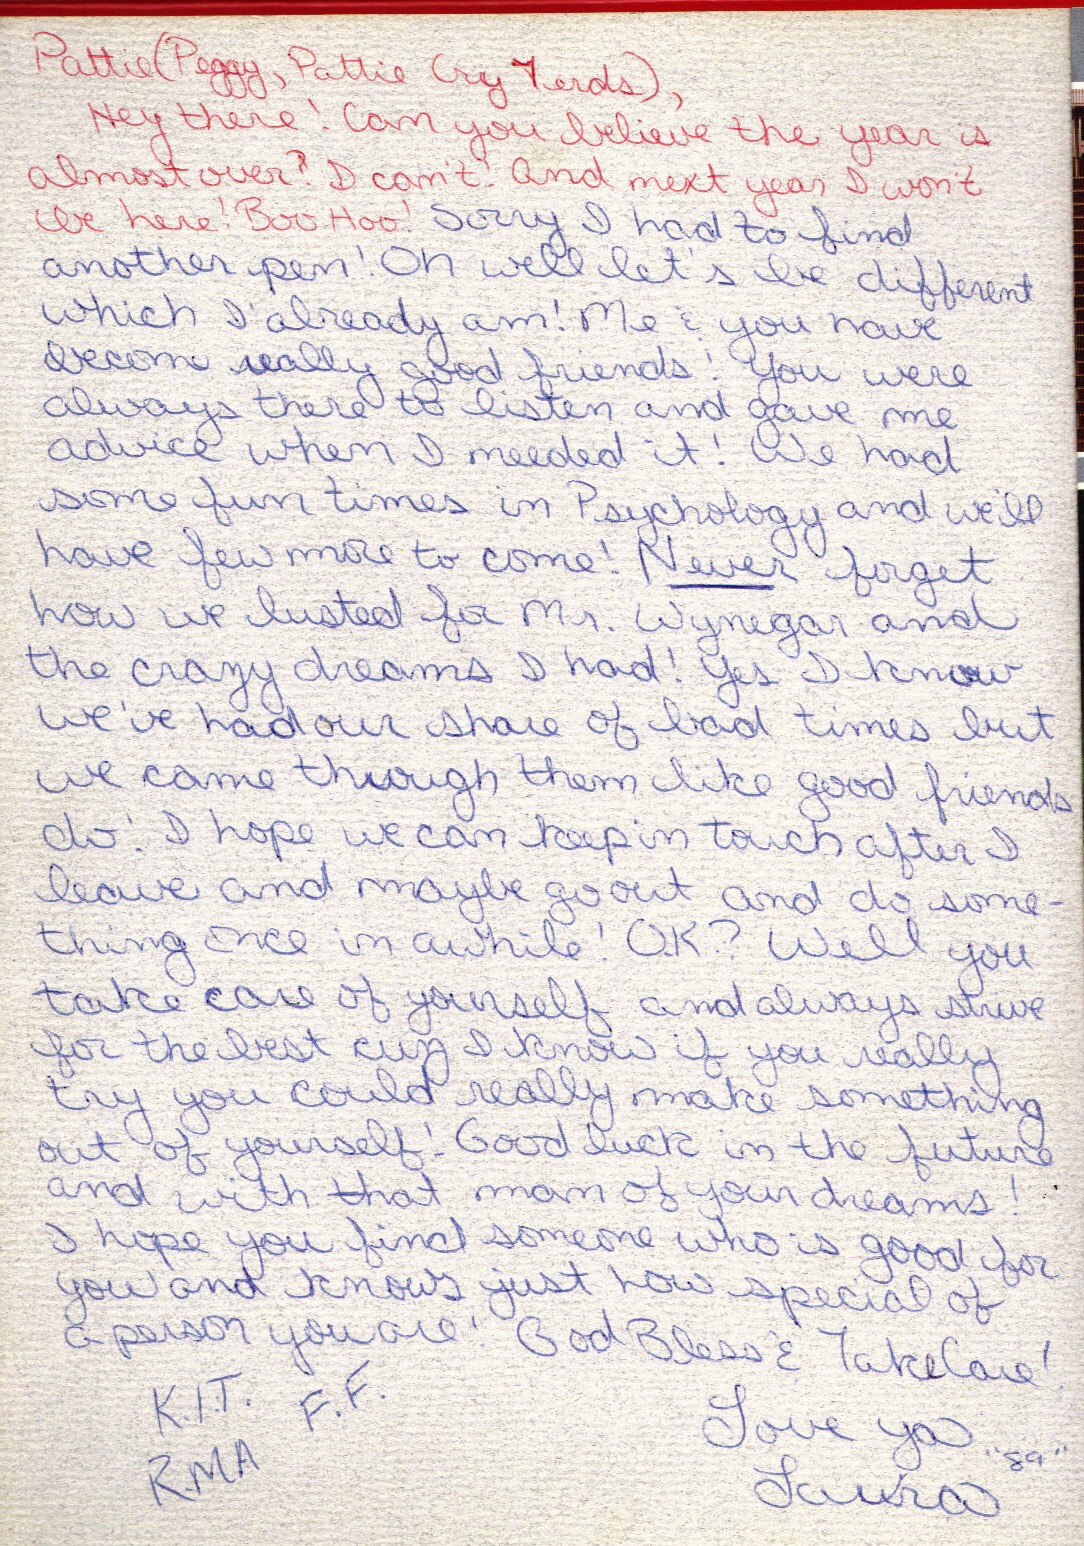 Pattie (Peggy, Pattie Cry Terds),
Hey there! Can you believe the year is
almost over? I can't! And next year I won't
be here! Boo Hoo! Sorry I had to find
another pen! Oh well let's be different
which I already am! Me & you have
becom really good friends! You were
always there to listen and gave me
advice when I needed it! We had
some fun times in Psychology and we'll
have few more to come! Never forget
how we lusted for Mr. Wynegar and
the crazy dreams I had! Yes I know
we've had our share of bad times but
we came through them like good friends
do! I hope we can keep in touch after I
leave and maybe go out and do some-
thing once in awhile! O.K? Well you
take care of yourself and always strive
for the best cuz I know if you really
try you could really make something
out of yourself! Good luck in the future
and with that man of your dreams!
I hope you find someone who is good for
you and knows just how special of
a person you are! God Bless & Take Care!
K.I.T. F.F.
Love ya
RMA
"89"
Laura